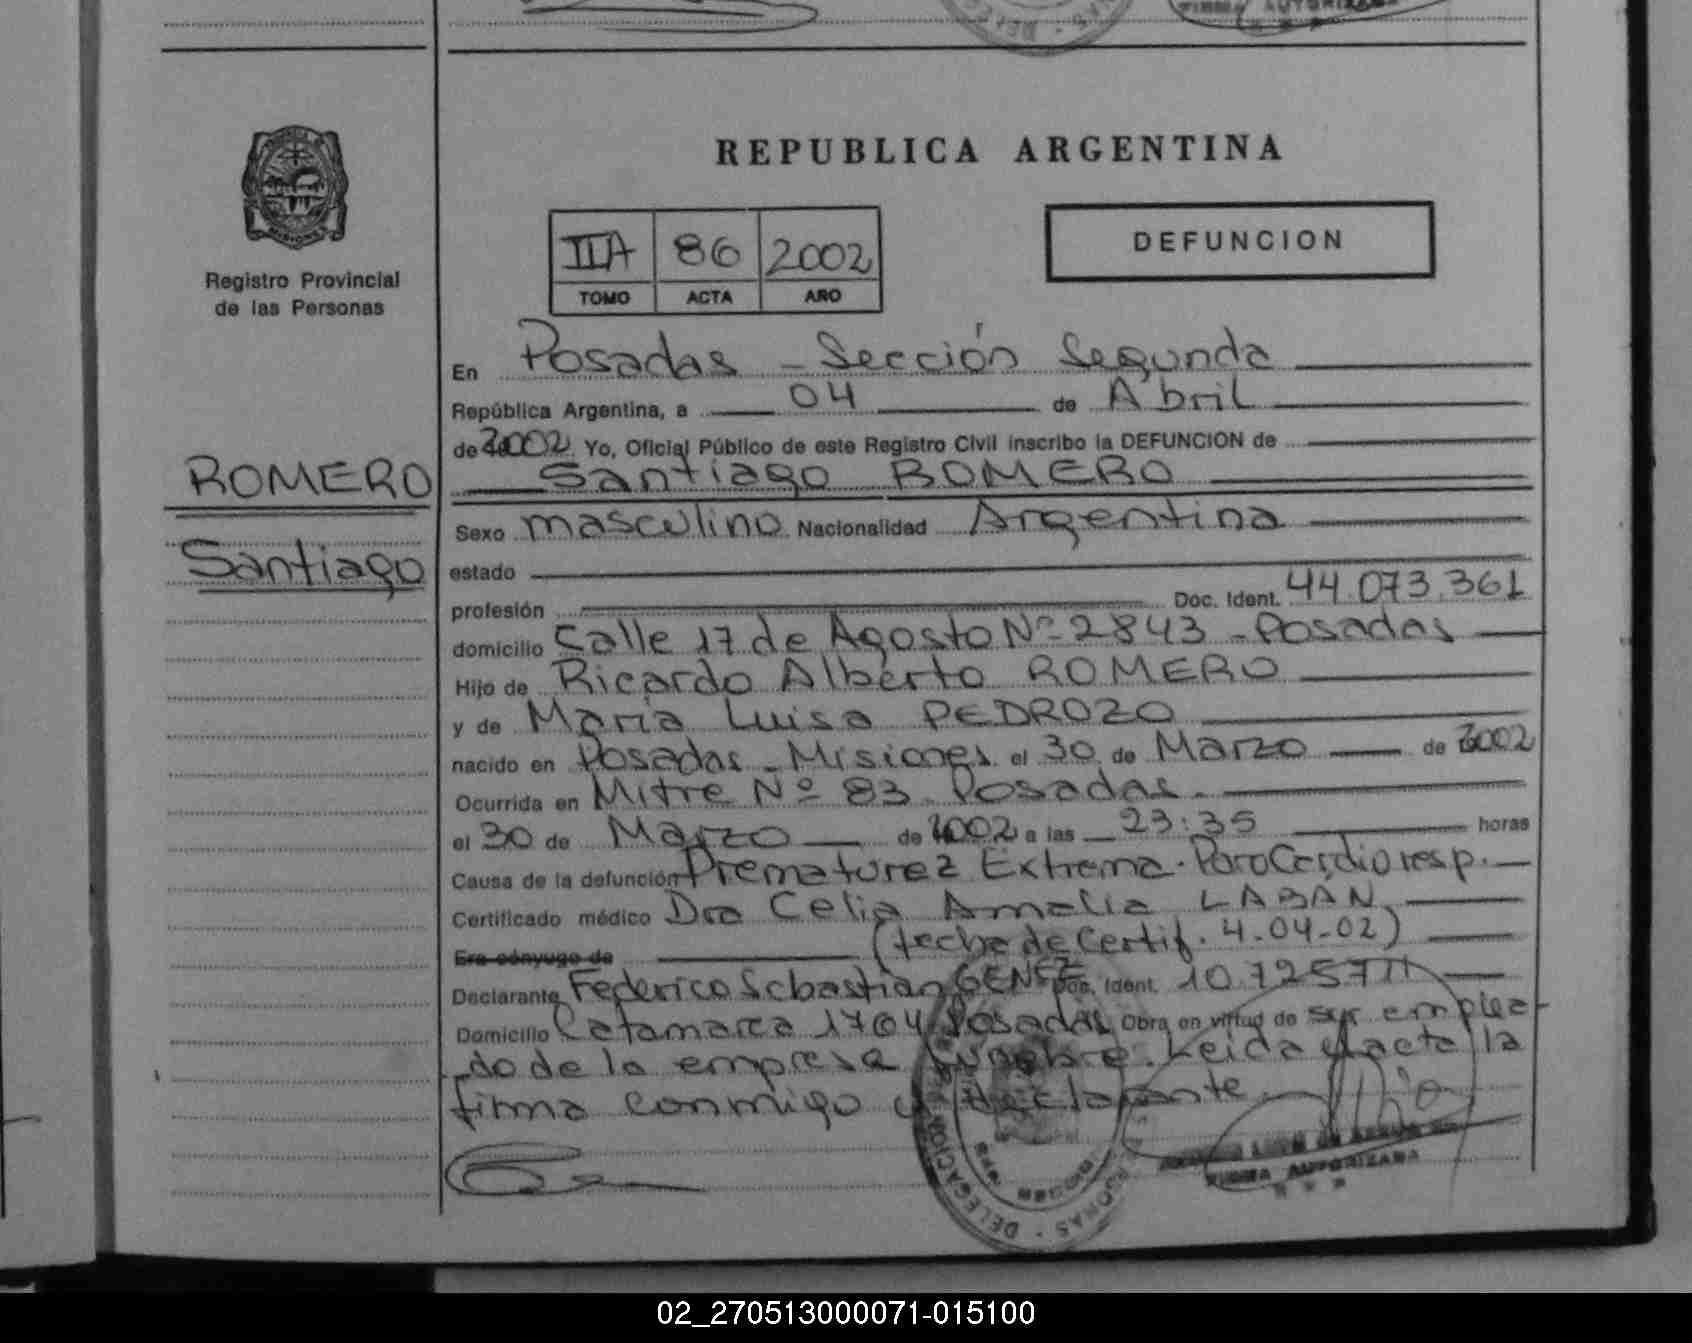 REPUBLICA ARGENTINA
Registro Provincial
de las Personas
IIA 86 2002
TOMO ACTA AÑO
DEFUNCION
ROMERO
Santiago
En Posadas - Sección Segunda
República Argentina, a 04 de Abril
de 2002 Yo, Oficial Público de este Registro Civil inscribo la DEFUNCION de
Santiago ROMERO
Sexo masculino Nacionalidad Argentina
estado
profesión Doc. Ident. 44.073.361
domicilio Calle 17 de Agosto Nº 2843 - Posadas
Hijo de Ricardo Alberto ROMERO
y de María Luisa PEDROZO
nacido en Posadas - Misiones el 30 de Marzo de 2002
Ocurrida en Mitre Nº 83 Posadas.
el 30 de Marzo de 2002 a las 23:35 horas
Causa de la defunción Prematurez Extrema. ParoCardioresp.
Certificado médico Dra Celia Amalia LABÁN
(fecha de Certif. 4.04-02)
Era cónyuge de
Declarante Federico Sebastián GENEZ Doc. Ident. 10.725711
Domicilio Catamarca 1764 Posadas Obra en virtud de ser emplea-
do de la empresa fúnebre. Leida el acta la
firma conmigo el declarante.
DELEGACION
FIRMA AUTORIZADA
02_270513000071-015100